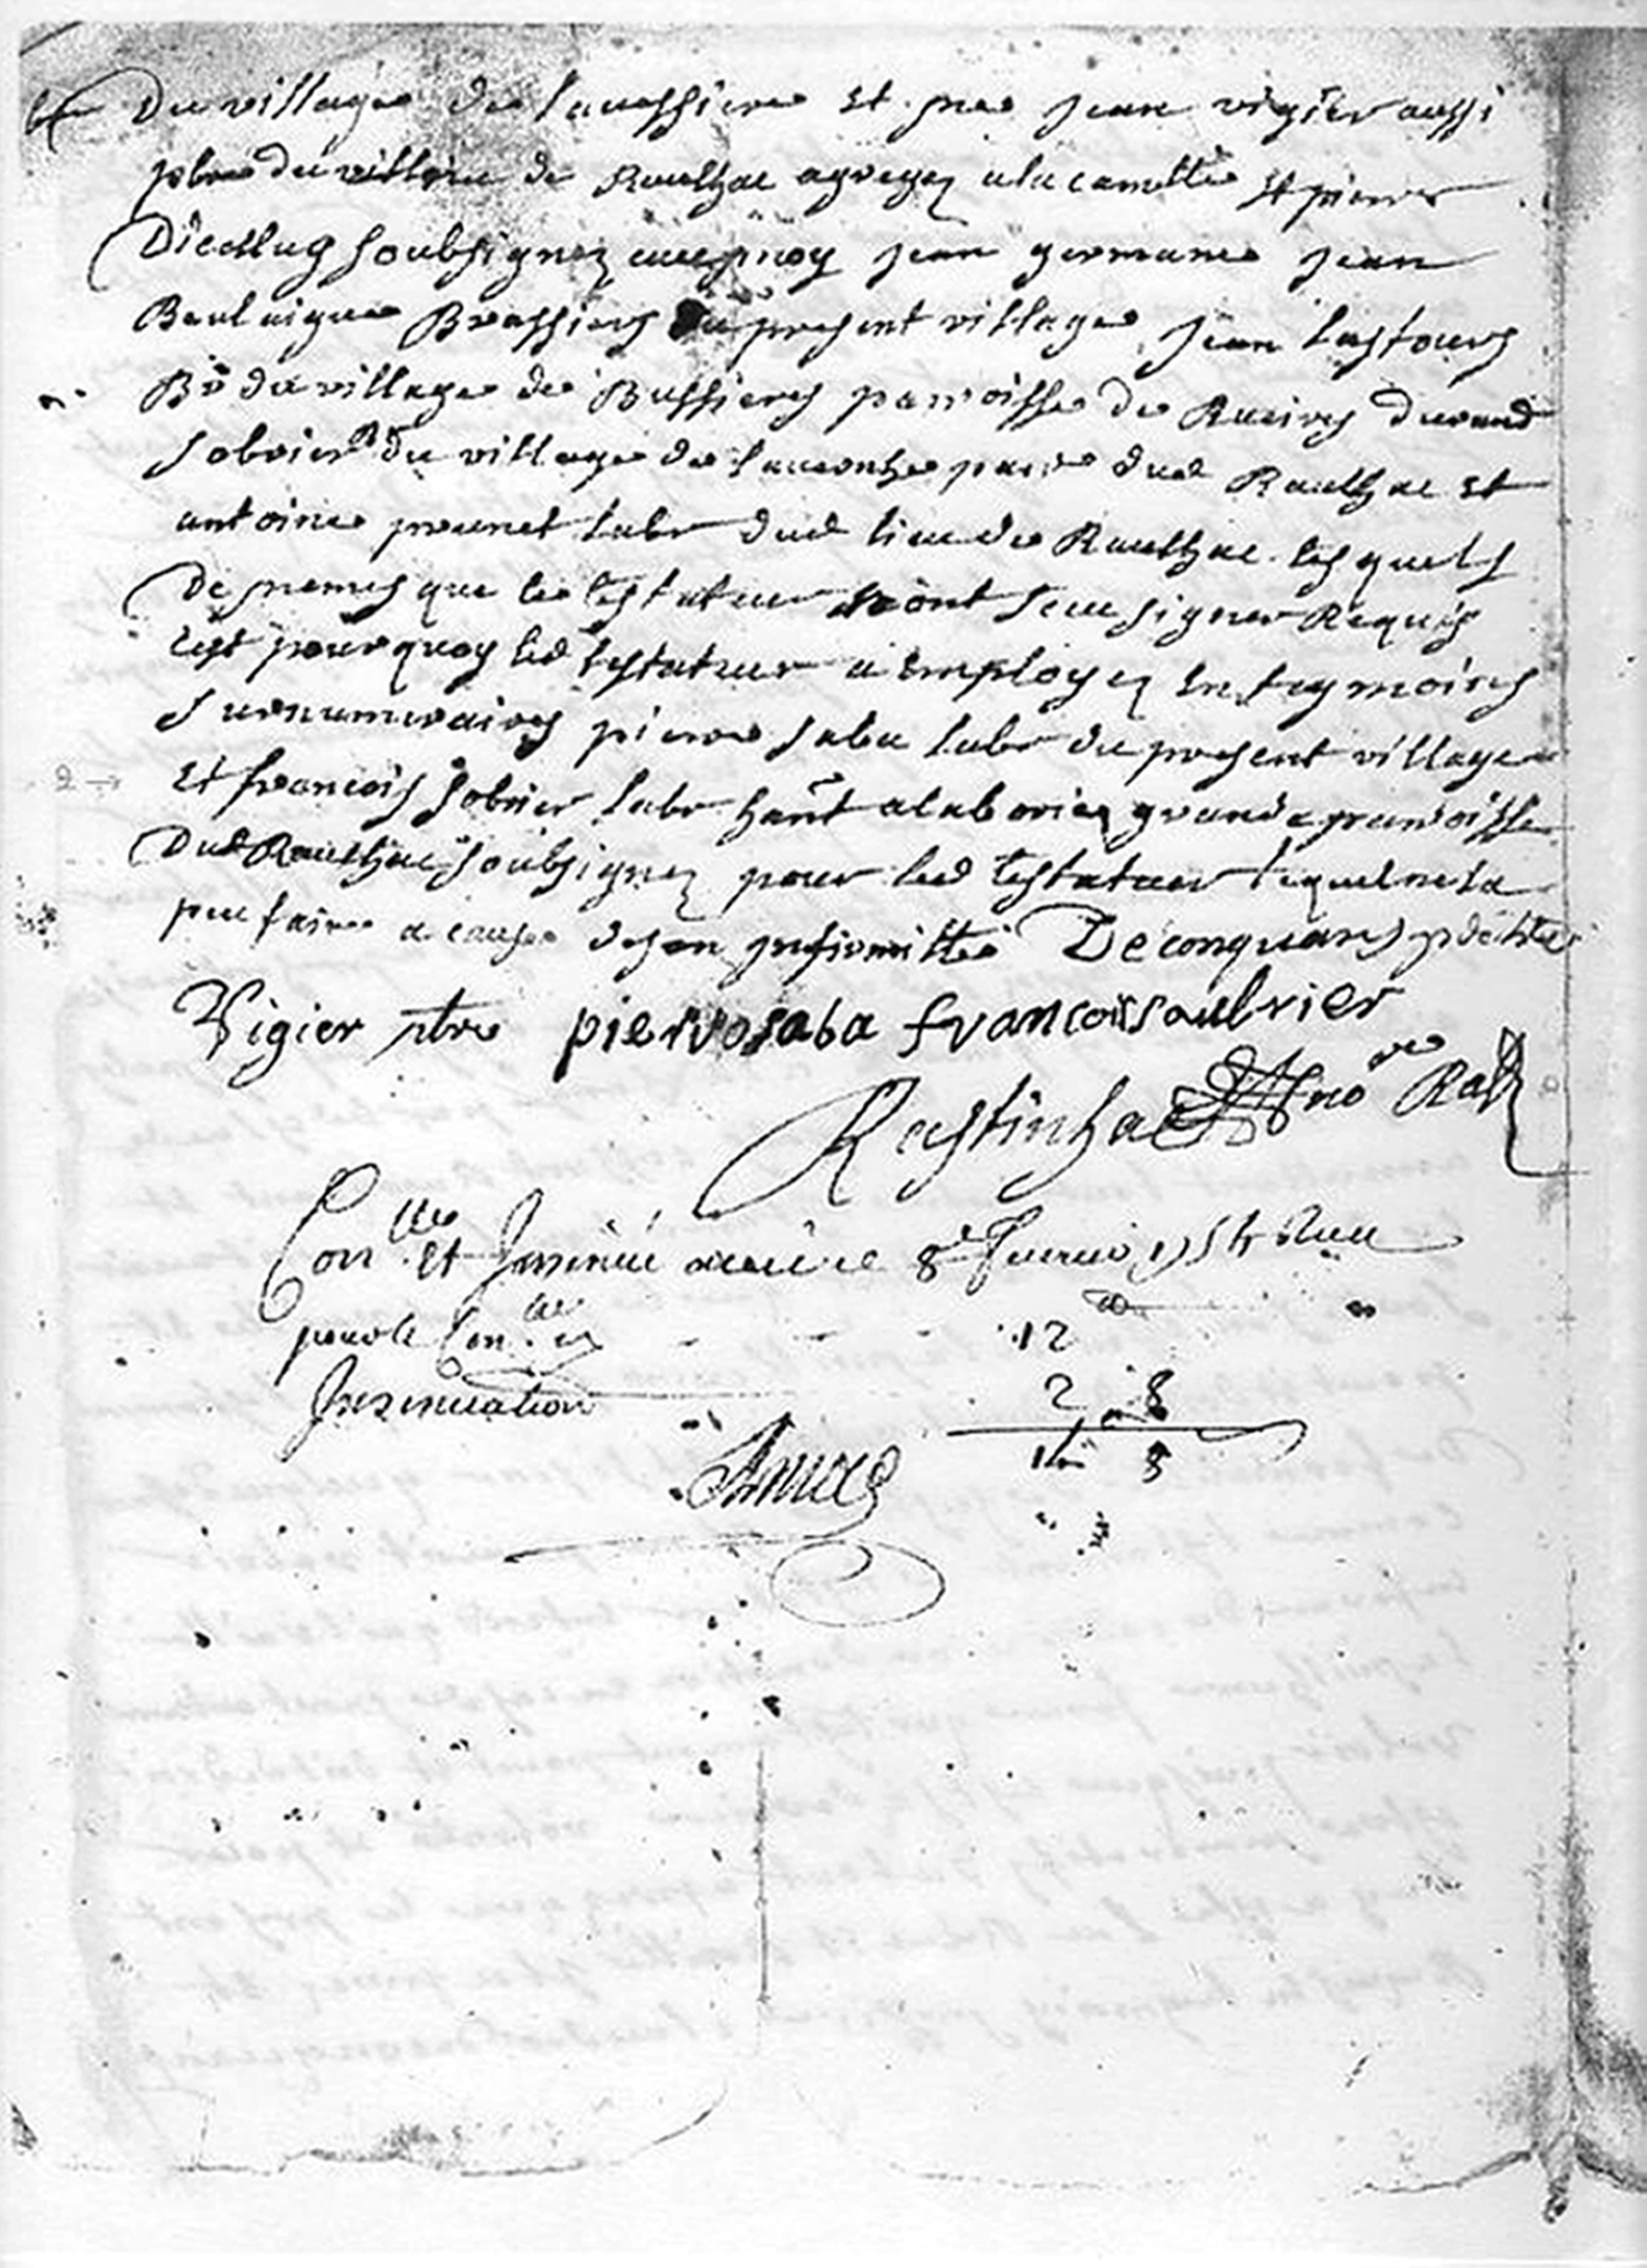 Du village de laveissiere et mre Jean vigier aussi
pbre du village de Raulhac agregez a la comtte St pierre
Soubsignez Jean germane Jean
Brassiers du present village Jean lastours
Br du village de Bussieres parroisse de Durand
Sobrier Br du village de parre dud Raulhac et
antoine prunet labr dud lieu de Raulhac lesquels
De memes que le testateur n'ont sceu signer Requis
cest pourquoy led testateur a employez en tesmoins
surnumeraires pierre saba labr du present village
Et francois Sobrier labr hant a laborie grande parroisse
Dud Raulhac soubsignez pour led testateur lequel ne la
peu faire a cause de son infirmitté Deconquans
Vigier ptre pierre saba francois saubrier
Rastinhac nore Ral
Conlle Et Insinué 8e Receu
pour le Conlle 12
Insinuation 2 8
14 8